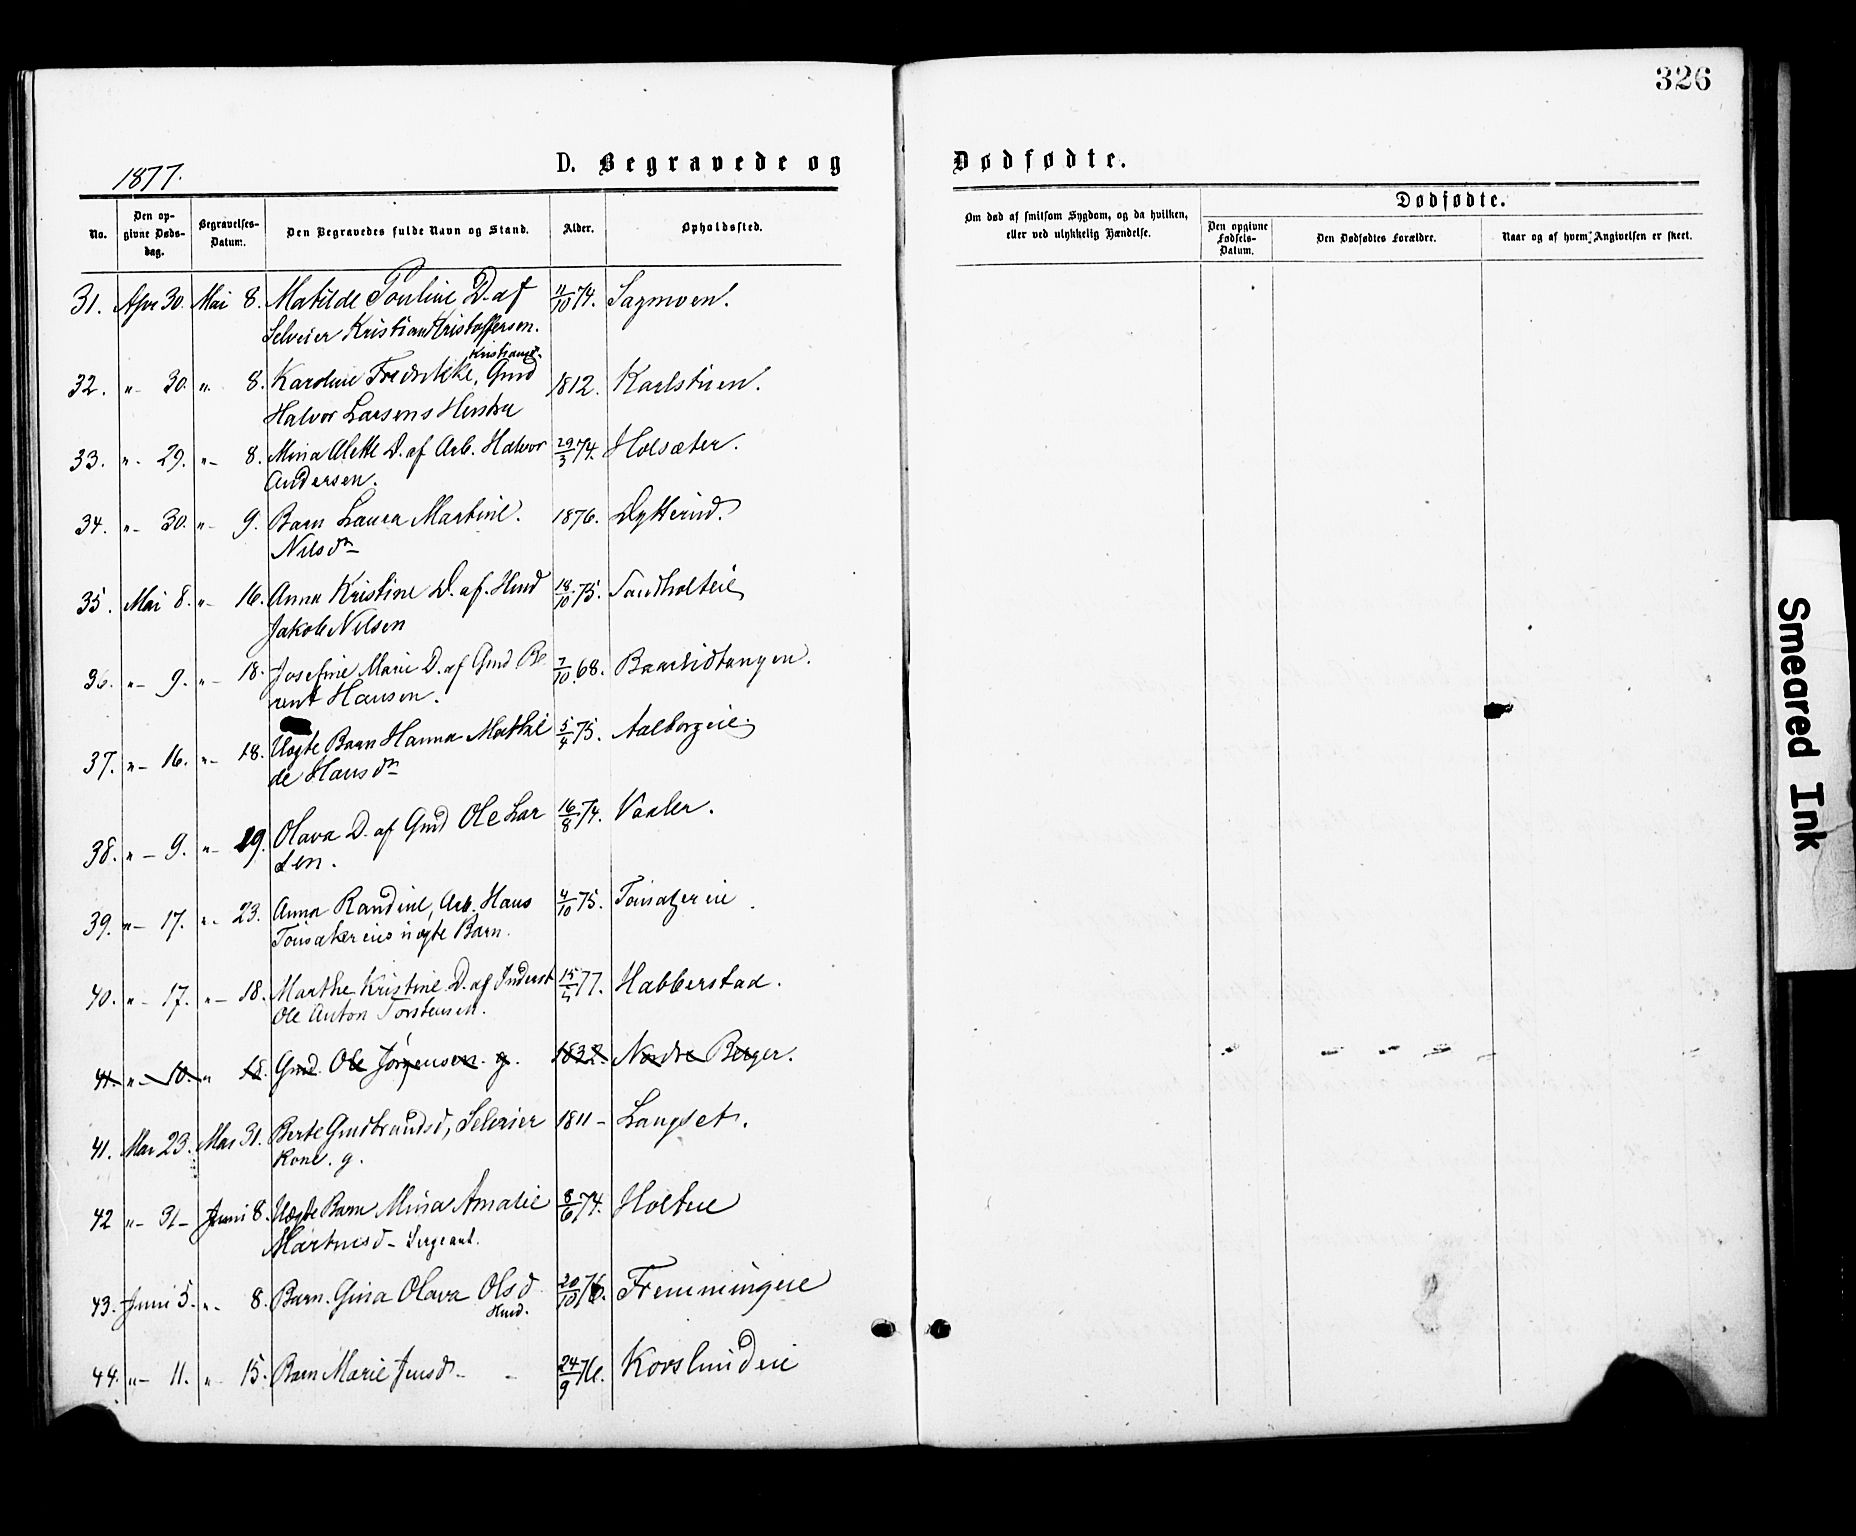 326
1877.
D. Begravede og Dødfødte.
No.
Den op-
givne Døds-
dag.
Begravelses-
Datum.
Den Begravedes fulde Navn og Stand.
Alder.
Opholdssted.
Om død af smitsom Sygdom, og da hvilken,
eller ved ulykkelig Hændelse.
Dødfødte.
Den opgivne
Fødsels-
Datum.
Den Dødfødtes Forældre.
Naar og af hvem Angivelsen er skeet.
31. Apr 30. Mai 8. Matilde Pouline D. af 11/10 74. Sagmoen.
Selveier Kristian Kristoffersen.
Kristiansd.
32. "- 30. "- 8. Karoline Fredrikke, Gmd 1812. Karlstuen.
Halvor Larsens Hustru
33. "- 29. "- 8. Mina Alette D. af Arb. Halvor 29/3 74. Holsæter.
Andersen.
34. "- 30. "- 9. Barn Laura Martine. 1876. Dytterud.
Nilsdr
35. Mai 8. "- 16. Anna Kristine D. af. Hmd 18/10 75. Sandholteie
Jakob Nilsen
36. "- 9. "- 18. Josefine Marie D. af Gmd Be 7/10 68. Baarlidtangen.
rent Hansen.
37. "- 16. "- 18. Uægte Barn Hanna Mathil 5/4 75. Aalborgeie.
de Hansdr
38. "- 9. "- 19. Olava D. af Gmd Ole Lar 16/8 74. Vaaler.
sen.
39. "- 17. "- 23. Anna Randine, Arb. Hans 4/10 75. Tonsagereie
Tonsakereies uægte Barn.
40. "- 17. "- 18. Marthe Kristine D. af Inderst 15/5 77. Habberstad.
Ole Anton Torstensen.
41. "- 10. " 18. Gmd Ole Jørgensen. g. 1832. Nordre Berger.
41. Mai 23. Mai 31. Berte Gudbrandsd, Selveier 1811 - Langset.
Kone. g.
42 "- 31- Juni 8. Uægte Barn Mina Amalie 8/6 74. Holteie
Martinsd - Sergeant.
43. Juni 5. "- 8. Barn. Gina Olava Olsd 20/10 76. Fremmingeie
Hmd.
44. "- 11. " 15. Barn Marie Jensd - - 24/9 76. Korslundeie
Smeared Ink